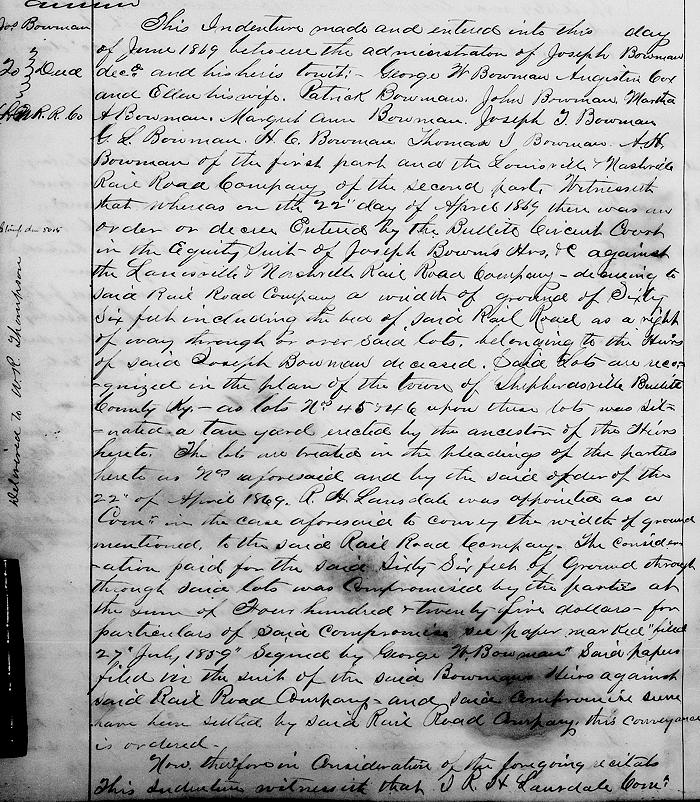 Jos Bowman
To } Deed
L & N R. R. Co
Delivered to W R. Thompson
This Indenture made and entered into this     day
of June 1869 between the administrator of Joseph Bowman
decd and his heirs towit:- George W Bowman Augustin Cox
and Ellen his wife. Patrick Bowman. John Bowman. Martha
A Bowman. Margret Ann Bowman. Joseph T. Bowman
G. L. Bowman. H. C. Bowman Thomas J Bowman. A. H.
Bowman of the first part and the Louisville & Nashville
Rail Road Company of the second part, Witnesseth
that whereas on the "22" day of April 1869 there was an
order or decree Entered by the Bullitt Circuit Court
in the Equity Suit of Joseph Bowm's Hrs, &c against
the Louisville & Nashville Rail Road Company - decreeing to
said Rail Road Company a width of ground of Sixty
Six feet including the bed of said Rail Road as a right
of way through or over said lots, belonging to the Heirs
of said Joseph Bowman deceased. Said Lots are reco-
-gnized in the plan of the town of Shepherdsville Bullitt
County Ky. - as lots Nos 45 & 46 upon these lots was sit-
-uated a tan yard erected by the ancestor of the Heirs
hereto. The lots are treated in the pleadings of the parties
hereto as Nos aforesaid and by the said order of the
22" of April 1869. R. H. Lansdale was appointed as a
Comr in the case aforesaid to convey the width of ground
mentioned, to the said Rail Road Company. The consider-
-ation paid for the said Sixty Six feet of Ground through
through said lots was Compromised by the parties at
the sum of Four hundred & twenty five dollars - for
particulars of said compromise see paper marked "filed
27" July, 1859" Signed by George W. Bowman" Said papers
filed in the suit of the said Bowmans Heirs against
said Rail Road Company - and said compromise
have been settled by said Rail Road Company, this conveyance
is ordered -
Now therefore in Consideration of the foregoing recitals
This Indenture witnesseth that I R. H Lansdale Comr